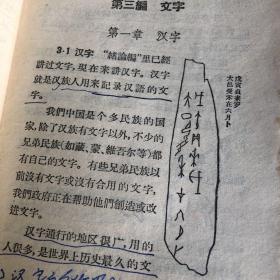 第三編 文字
第一章 汉字
3·1 汉字 “緒論編”里已經
講过文字，現在来講汉字。汉字
就是汉族人用来記录汉語的文
字。
我們中国是个多民族的国
家，除了汉族有文字以外，不少的
兄弟民族(如藏、蒙、維吾尔等)都
有自己的文字。有些兄弟民族以
前沒有文字或沒有合用的文字，
我們政府正在帮助他們創造或改
进文字。
汉字通行的地区很广，用的
人很多，是世界上历史最久的文
大邑受禾在六月卜